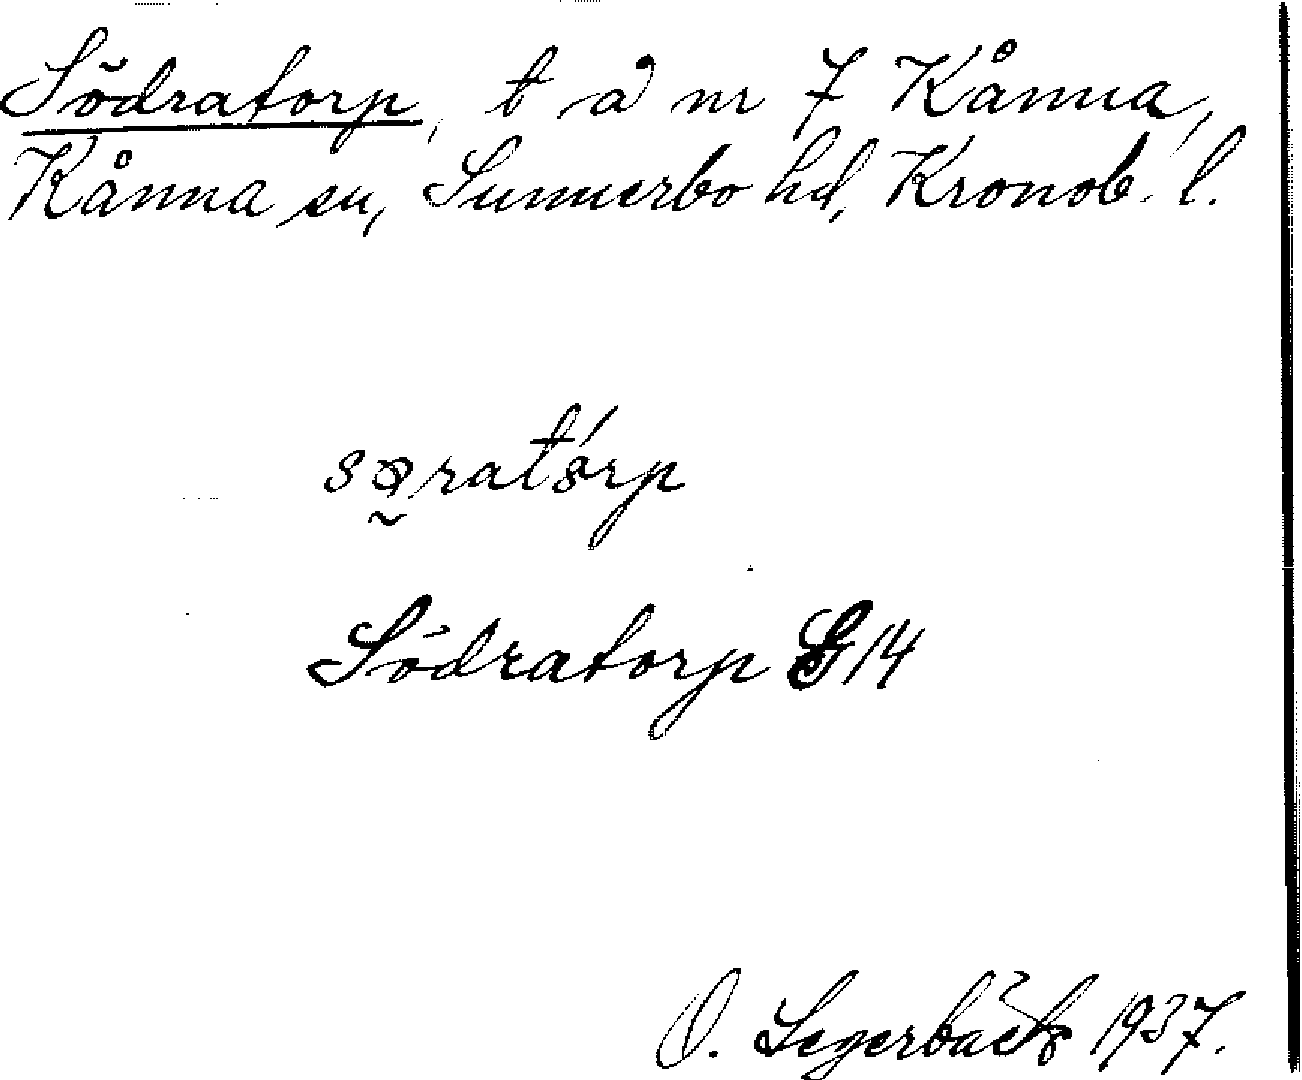 Södratorp, t å nr 7 Kånna,
Kånna sn, Sunnerbo hd, Kronob. l.
Södratorp G14
O. Segerbäck 1937.